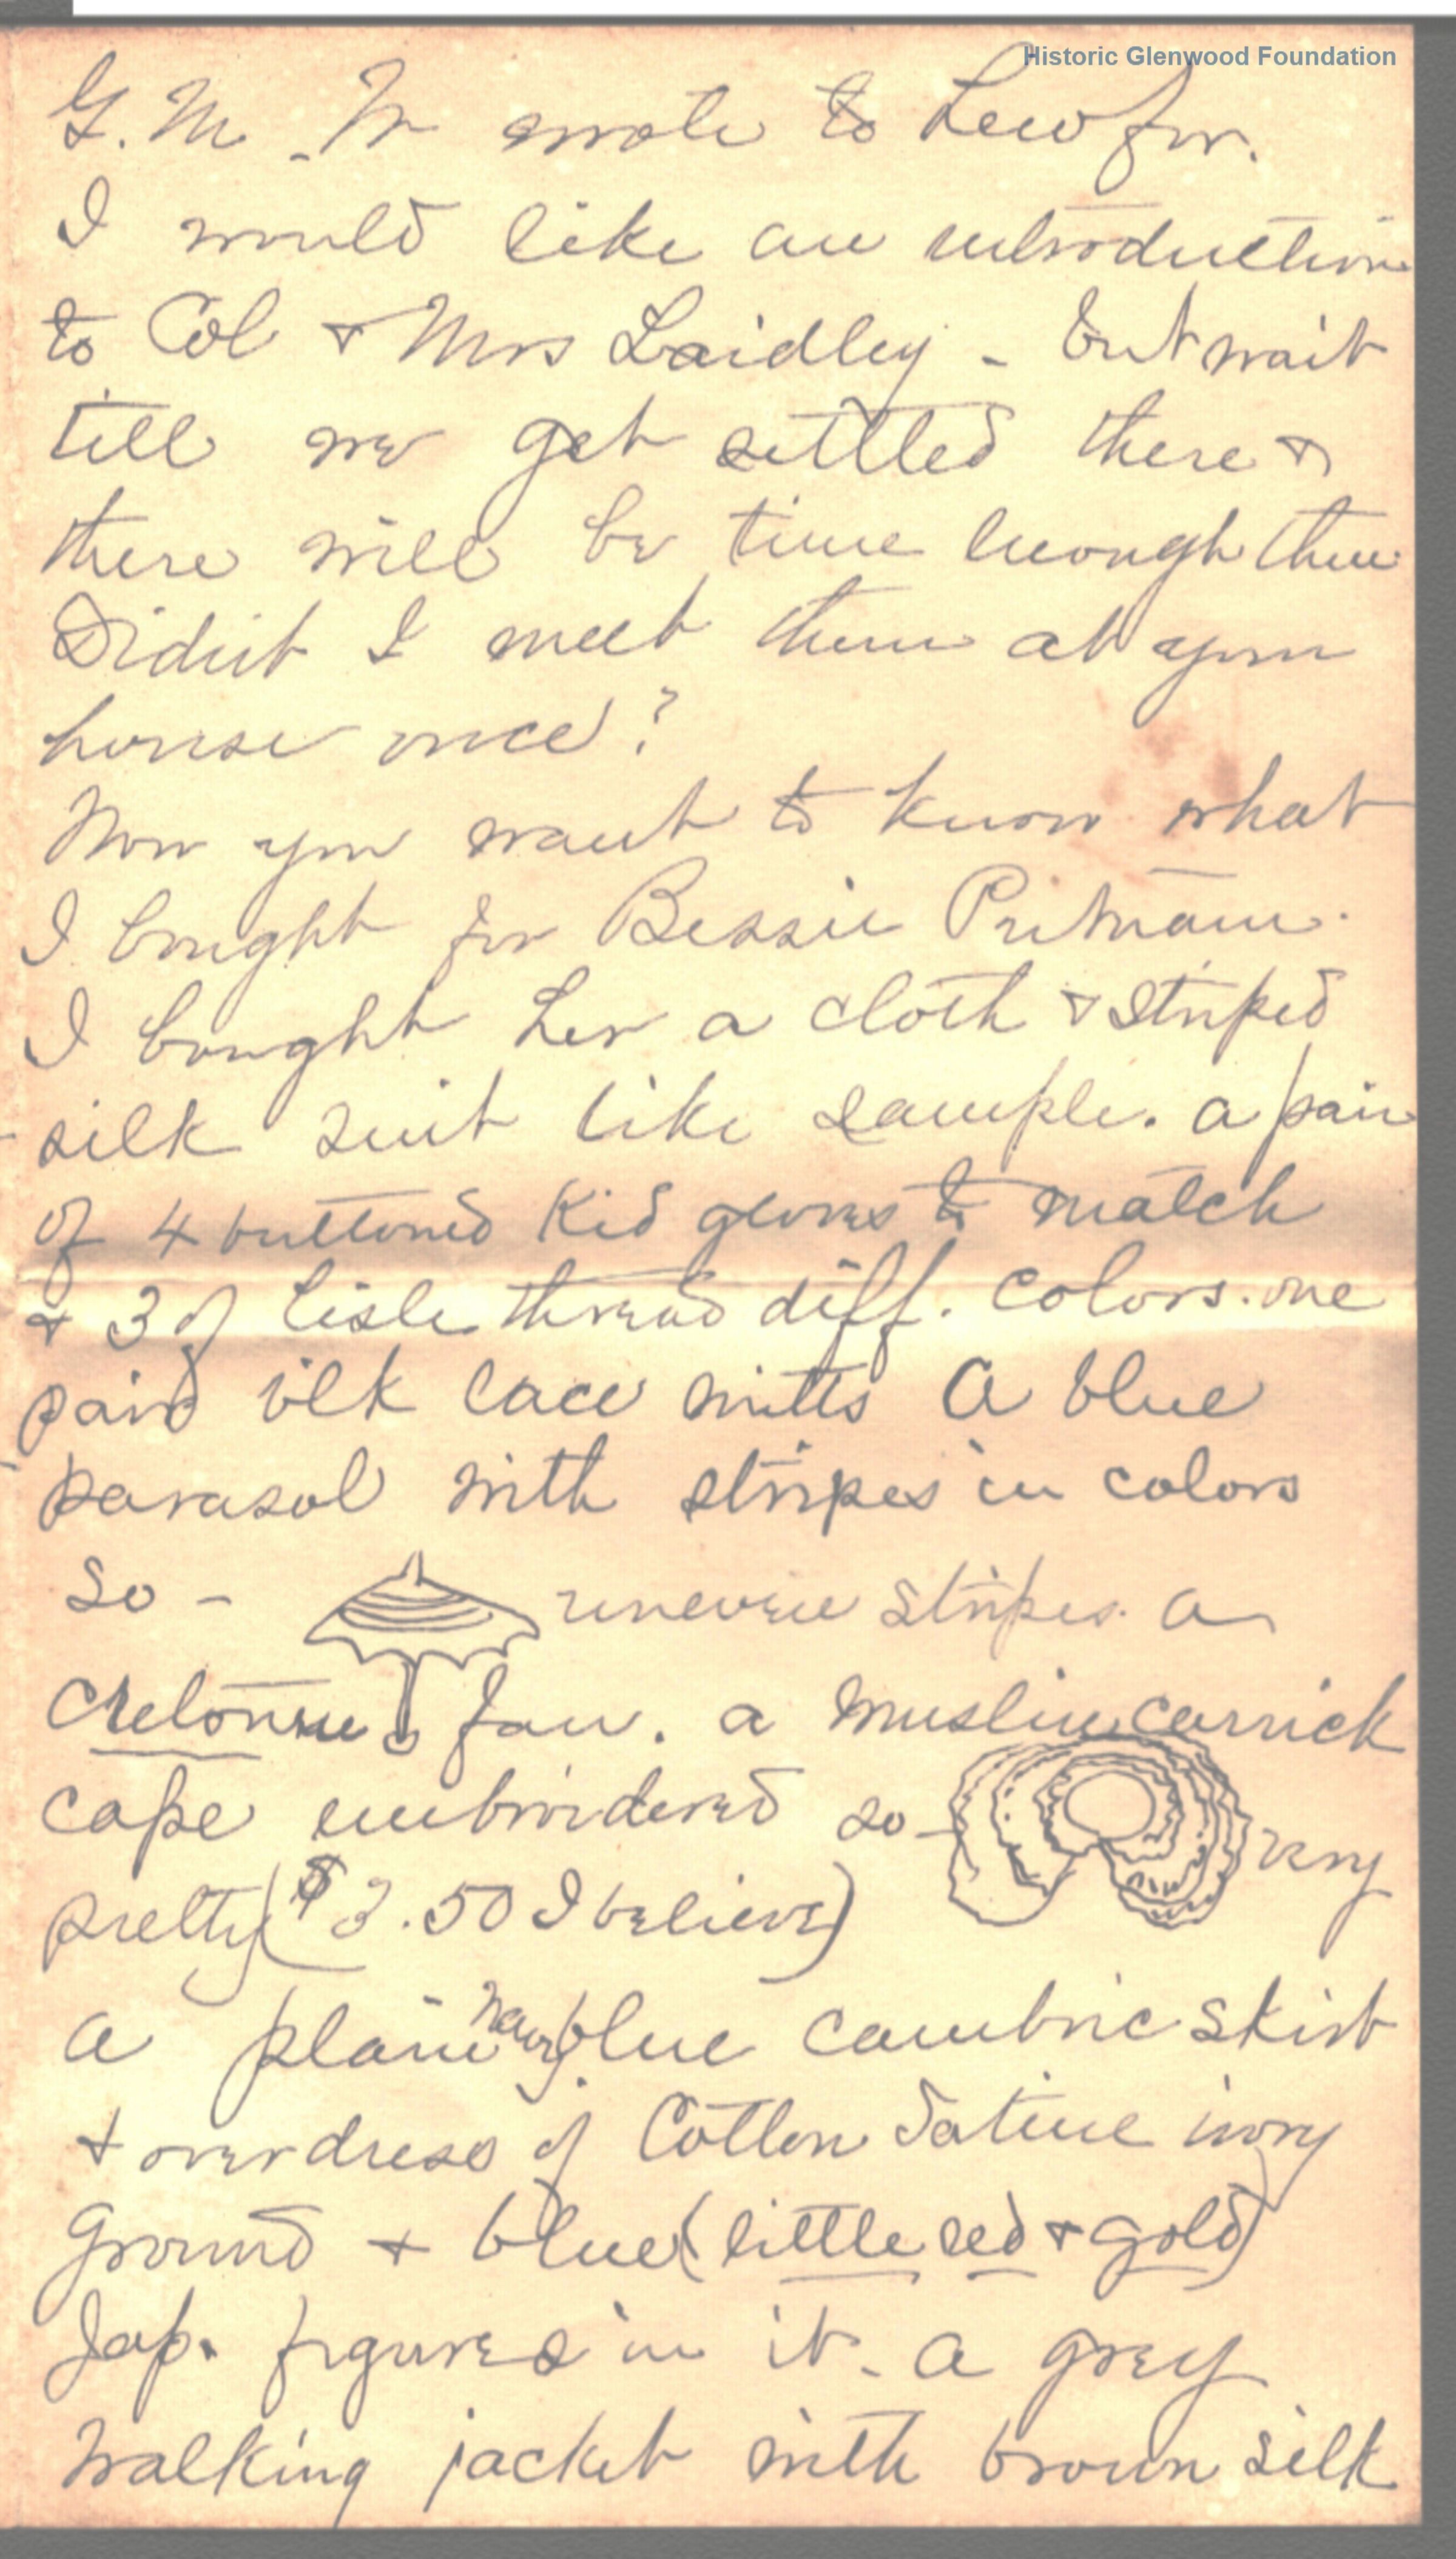 Historic Glenwood Foundation
G. M. W wrote to Lew for.
I would like an introduction
to Col & Mrs Laidley - but wait
till we get settled there &
there will be time enough then
Didn't I meet them at your
house once?
Now you want to know what
I bought for Bessie Putnam.
I bought her a cloth & striped
silk suit like sample. a pair
of 4 buttoned Kid gloves to match
& 3 of lisle thread diff. colors. one
pair silk lace mitts A blue
parasol with stripes in colors
so - uneven stripes. a
cretonne fan. a muslin carrick
cape embroidered so - very
pretty ($3.50 I believe)
a plain navy blue cambric skirt
& overdress of Cotton Satine ivory
ground & blue (little red & gold)
Jap. figures in it - a grey
walking jacket with brown silk